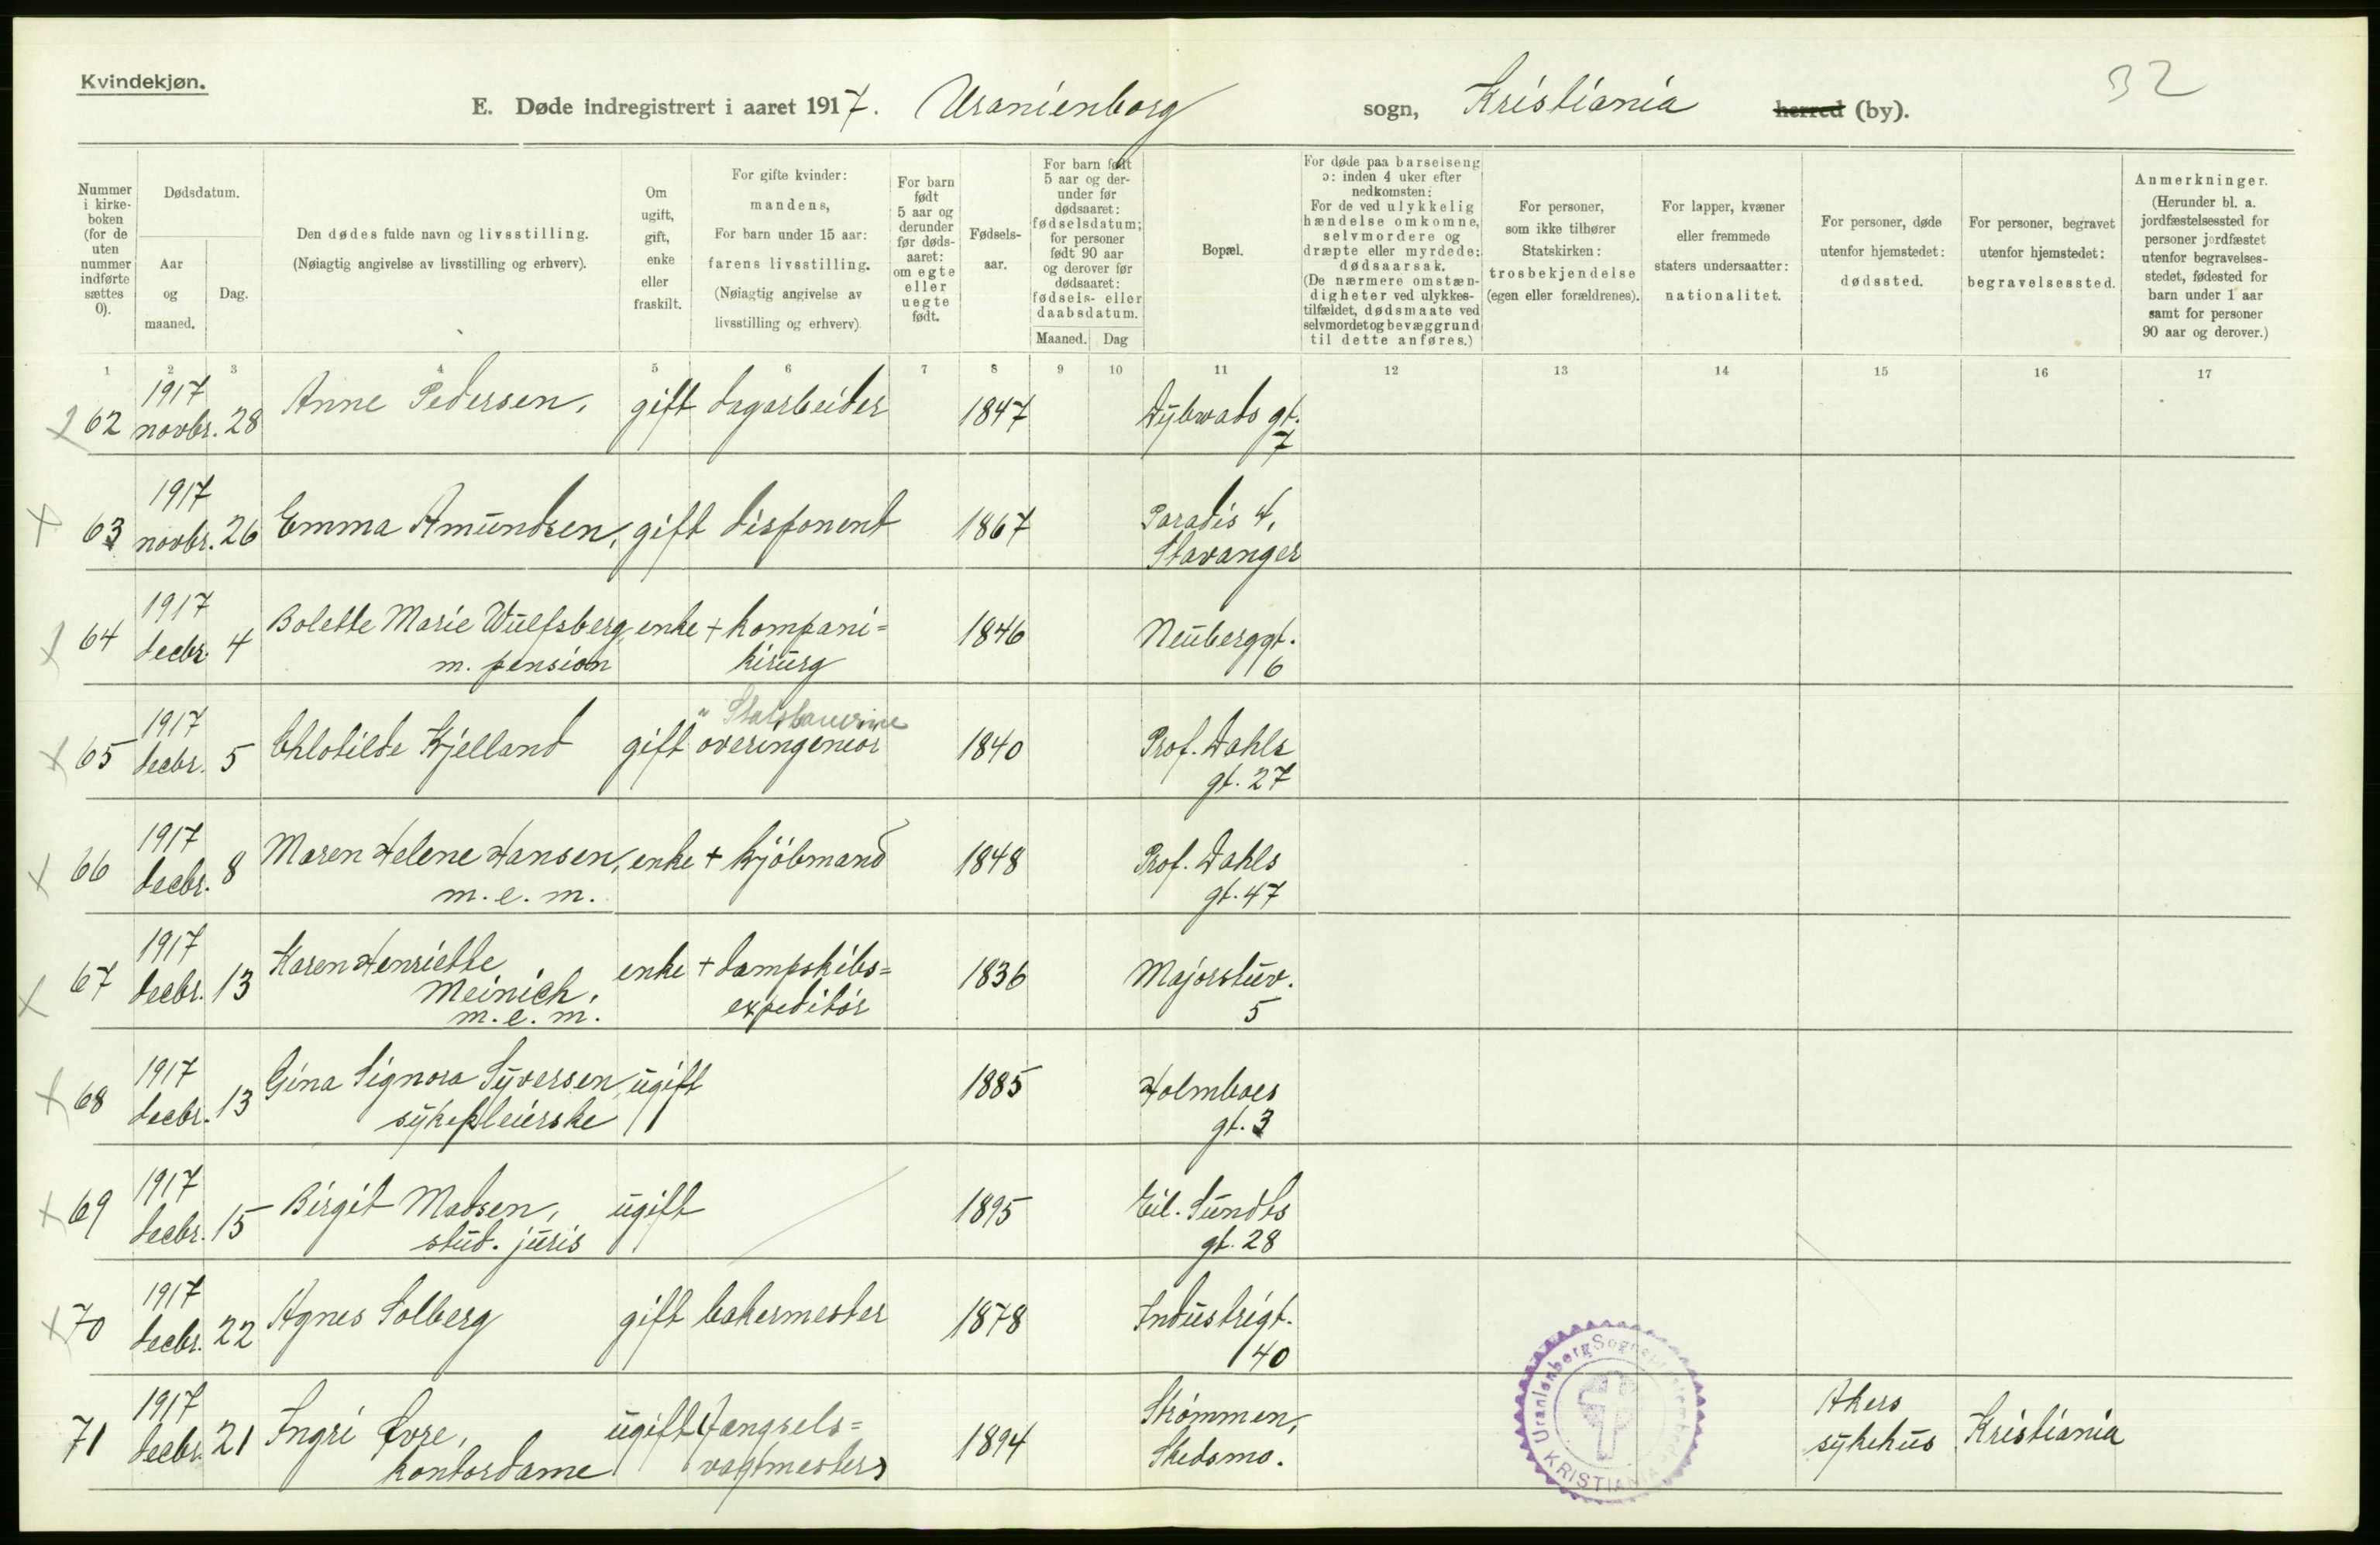 Kvindekjøn.
32
E. Døde indregistrert i aaret 1917. Uranienborg sogn, Kristiania herred (by).
Nummer i kirkeboken (for de uten nummer indførte sættes 0).
Dødsdatum.
Aar og maaned.
Dag.
Den dødes fulde navn og livsstilling.
(Nøiagtig angivelse av livsstilling og erhverv).
Om ugift, gift, enke eller fraskilt.
For gifte kvinder: mandens, For barn under 15 aar: farens livsstilling. (Nøiagtig angivelse av livsstilling og erhverv)
For barn født 5 aar og derunder før dødsaaret: om egte eller uegte født.
Fødselsaar.
For barn født 5 aar og derunder før dødsaaret: fødselsdatum; for personer født 90 aar og derover før dødsaaret: fødsels- eller daabsdatum.
Maaned. Dag
Bopæl.
For døde paa barselseng ɔ: inden 4 uker efter nedkomsten: For de ved ulykkelig hændelse omkomne, selvmordere og dræpte eller myrdede: dødsaarsak. (De nærmere omstændigheter ved ulykkestilfældet, dødsmaate ved selvmordet og bevæggrund til dette anføres.)
For personer, som ikke tilhører Statskirken: trosbekjendelse (egen eller forældrenes).
For lapper, kvæner eller fremmede staters undersaatter: nationalitet.
For personer, døde utenfor hjemstedet: dødssted.
For personer, begravet utenfor hjemstedet: begravelsessted.
Anmerkninger. (Herunder bl. a. jordfæstelsessted for personer jordfæstet utenfor begravelsesstedet, fødested for barn under 1 aar samt for personer 90 aar og derover.)
1 2 3 4 5 6 7 8 9 10 11 12 13 14 15 16 17
1917
62 novbr. 28 Anne Pedersen, gift dagarbeider 1847 Dybwads gt.
7
1917
63 novbr. 26 Emma Amundsen, gift disponent 1867 Paradis 4,
Stavanger
1917
64 decbr. 4 Bolette Marie Wulfsberg, enke + kompani= 1846 Neuberggt.
m. pension kirurg 6
1917
65 decbr. 5 Chlotilde Kjelland gift overingeniør 1840 Prof. Dahls
gt. 27
1917
66 decbr. 8 Maren Helene Hansen, enke + kjøbmand 1848 Prof. Dahls
m. e. m. gt. 47
1917
67 decbr. 13 Karen Henriette enke + dampskibs= 1836 Majorstuv.
Meinich, expeditør 5
m. e. m.
1917
68 decbr. 13 Gina Signora Syversen, ugift 1885 Holmboes
sykepleierske gt. 3
1917
69 decbr. 15 Birgit Madsen, ugift 1895 Eil. Sundts
stud. juris gt. 28
1917
70 decbr. 22 Agnes Solberg gift bakermester 1878 Industrigt.
40
1917
71 decbr. 21 Ingri Øvre, ugift fangsels= 1894 Strømmen, Akers Kristiania
kontordame vagtmesters Skedsmo. sykehus
Uranienborg Sogneprestembede
KRISTIANIA